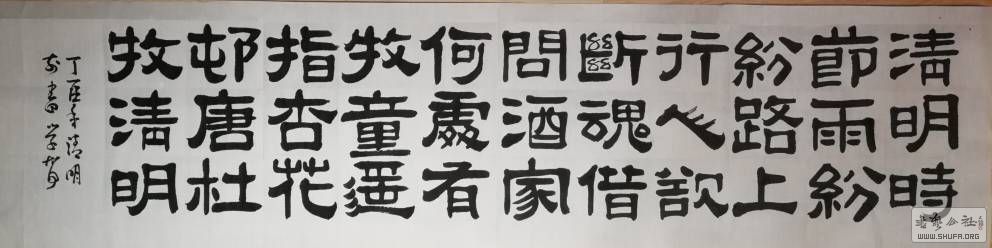 清明時
節雨紛
紛路上
行人欲
斷魂借
問酒家
何處有
牧童遥
指杏花
邨唐杜
牧清明
丁酉年清明
書学
WWW.SHUFA.ORG